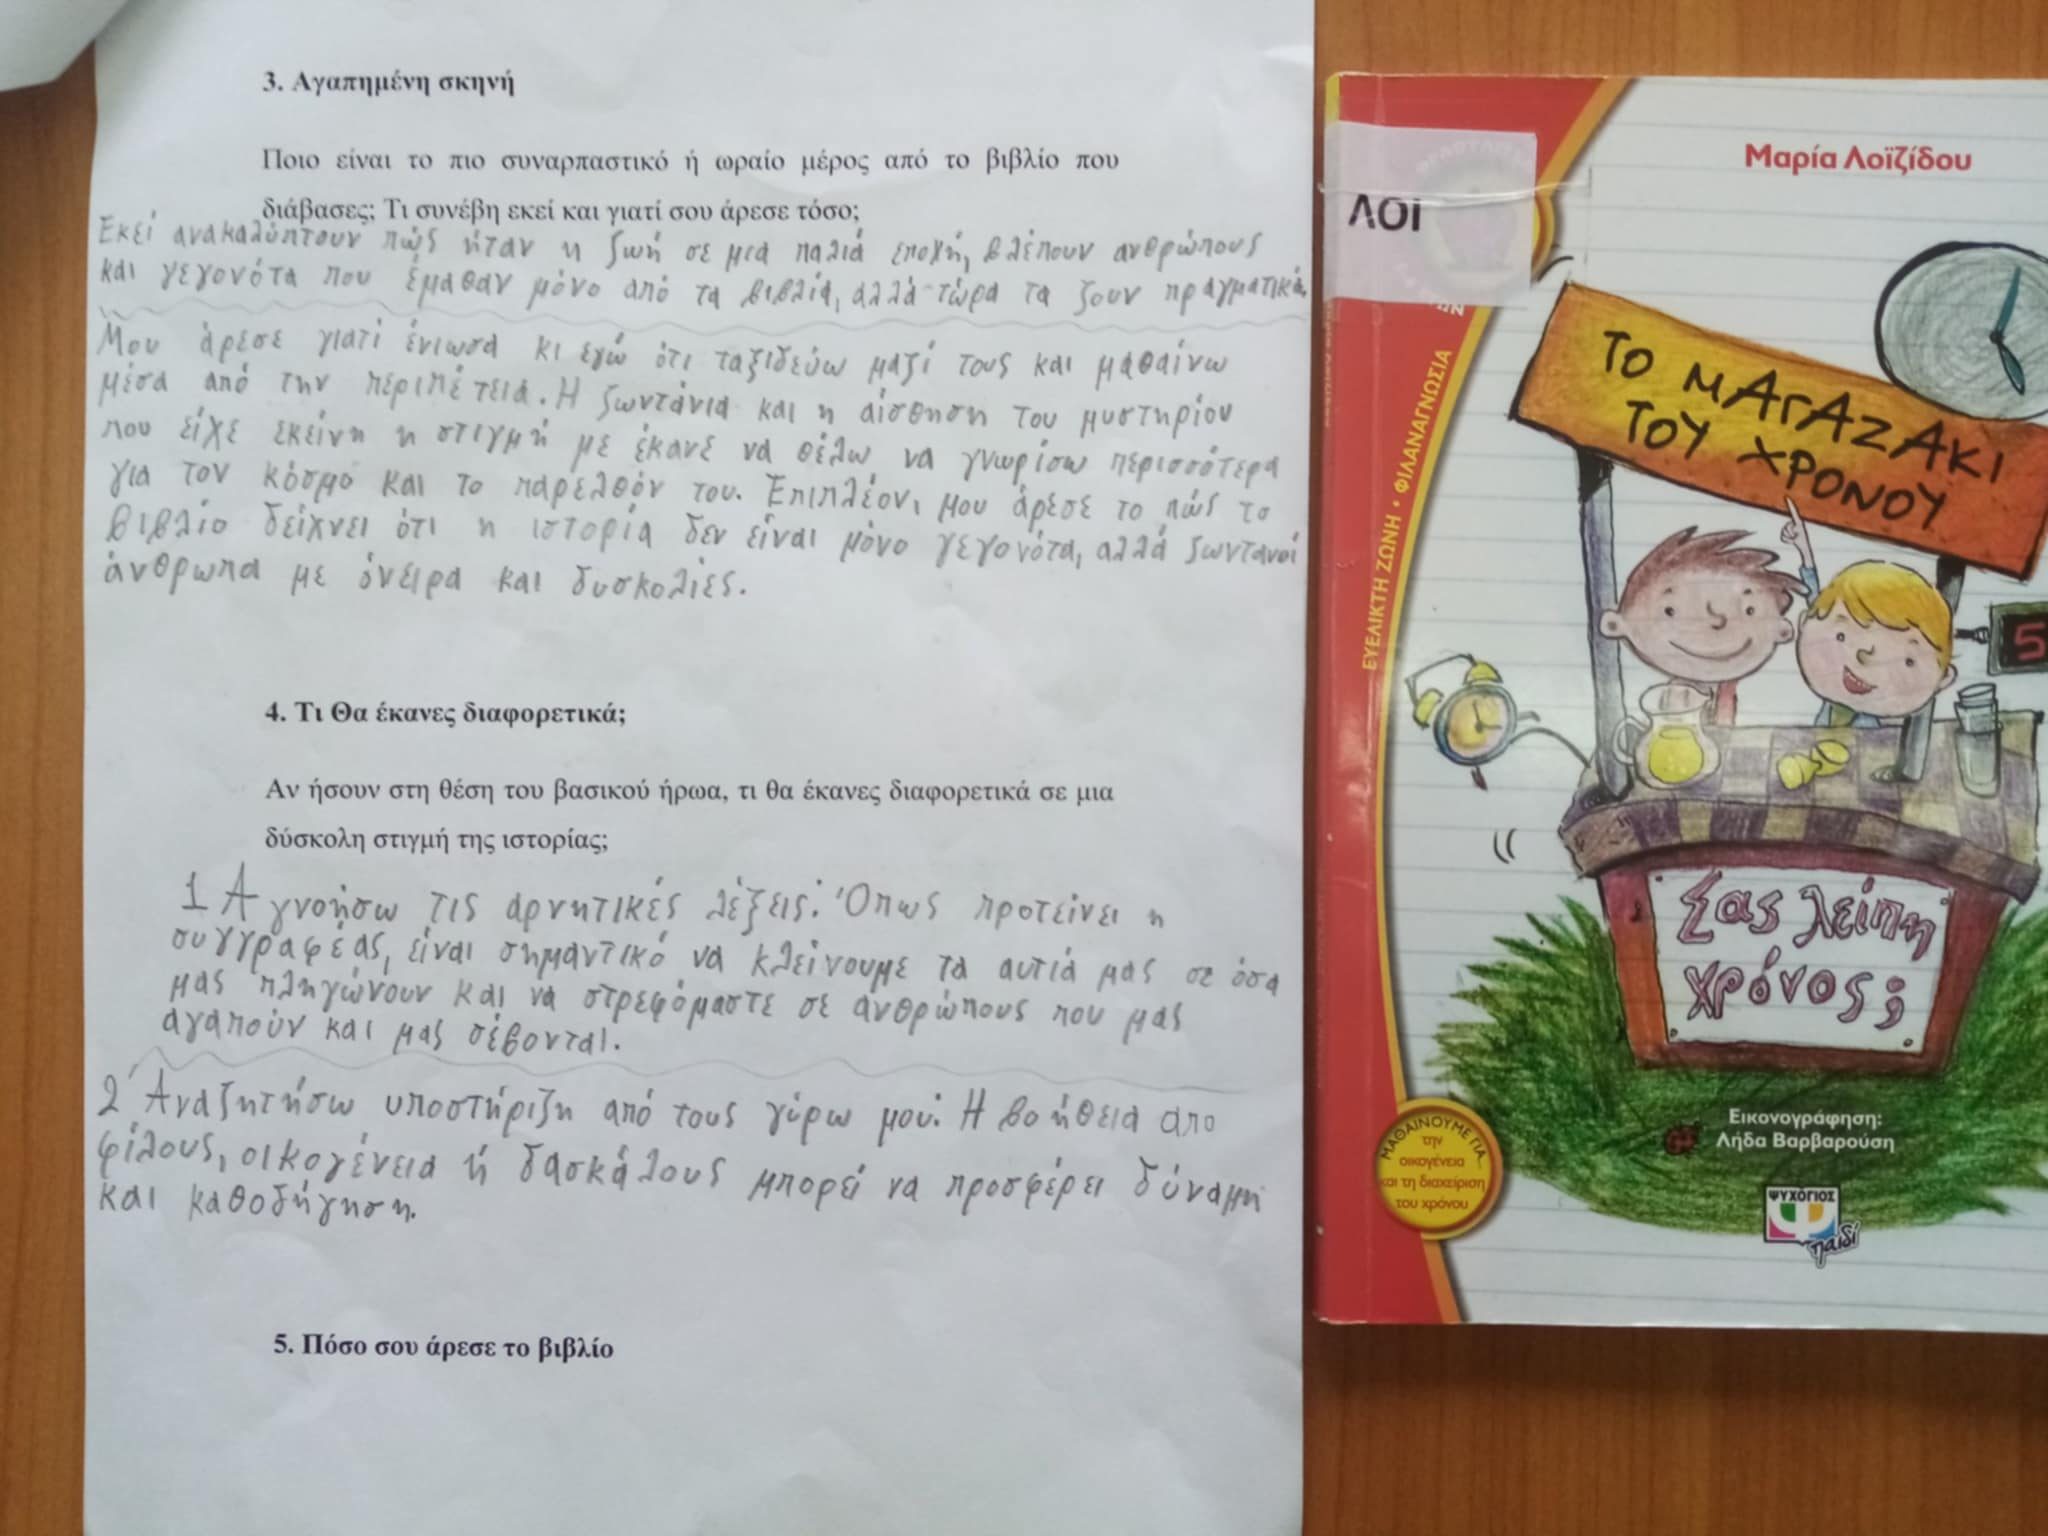 3. Αγαπημένη σκηνή
Ποιο είναι το πιο συναρπαστικό ή ωραίο μέρος από το βιβλίο που
διάβασες; Τι συνέβη εκεί και γιατί σου άρεσε τόσο;
Εκεί ανακαλύπτουν πώς ήταν η ζωή σε μια παλιά εποχή, βλέπουν ανθρώπους
και γεγονότα που έμαθαν μόνο από τα βιβλία, αλλά τώρα τα ζουν πραγματικά.
Μου άρεσε γιατί ένιωσα κι εγώ ότι ταξιδεύω μαζί τους και μαθαίνω
μέσα από την περιπέτεια. Η ζωντάνια και η αίσθηση του μυστηρίου
που είχε εκείνη η στιγμή με έκανε να θέλω να γνωρίσω περισσότερα
για τον κόσμο και το παρελθόν του. Επιπλέον, μου άρεσε το πώς το
βιβλίο δείχνει ότι η ιστορία δεν είναι μόνο γεγονότα, αλλά ζωντανοί
άνθρωπα με όνειρα και δυσκολίες.
4. Τι Θα έκανες διαφορετικά;
Αν ήσουν στη θέση του βασικού ήρωα, τι θα έκανες διαφορετικά σε μια
δύσκολη στιγμή της ιστορίας;
1 Αγνοήσω τις αρνητικές λέξεις: Όπως προτείνει η
συγγραφέας, είναι σημαντικό να κλείνουμε τα αυτιά μας σε όσα
μας πληγώνουν και να στρεφόμαστε σε ανθρώπους που μας
αγαπούν και μας σέβονται.
2 Αναζητήσω υποστήριξη από τους γύρω μου: Η βοήθεια απο
φίλους, οικογένεια ή δασκάλους μπορεί να προσφέρει δύναμη
και καθοδήγηση.
5. Πόσο σου άρεσε το βιβλίο
Μαρία Λοϊζίδου
ΛΟΙ
ΕΥΕΛΙΚΤΗ ΖΩΝΗ • ΦΙΛΑΝΑΓΝΩΣΙΑ
ΤΟ ΜΑΓΑΖΑΚΙ
ΤΟΥ ΧΡΟΝΟΥ
5
Σας λείπη
χρόνος;
Εικονογράφηση:
Λήδα Βαρβαρούση
ΜΑΘΑΙΝΟΥΜΕ ΓΙΑ
την
οικογένεια
και τη διαχείριση
του χρόνου
ΨΥΧΟΓΙΟΣ
παιδί